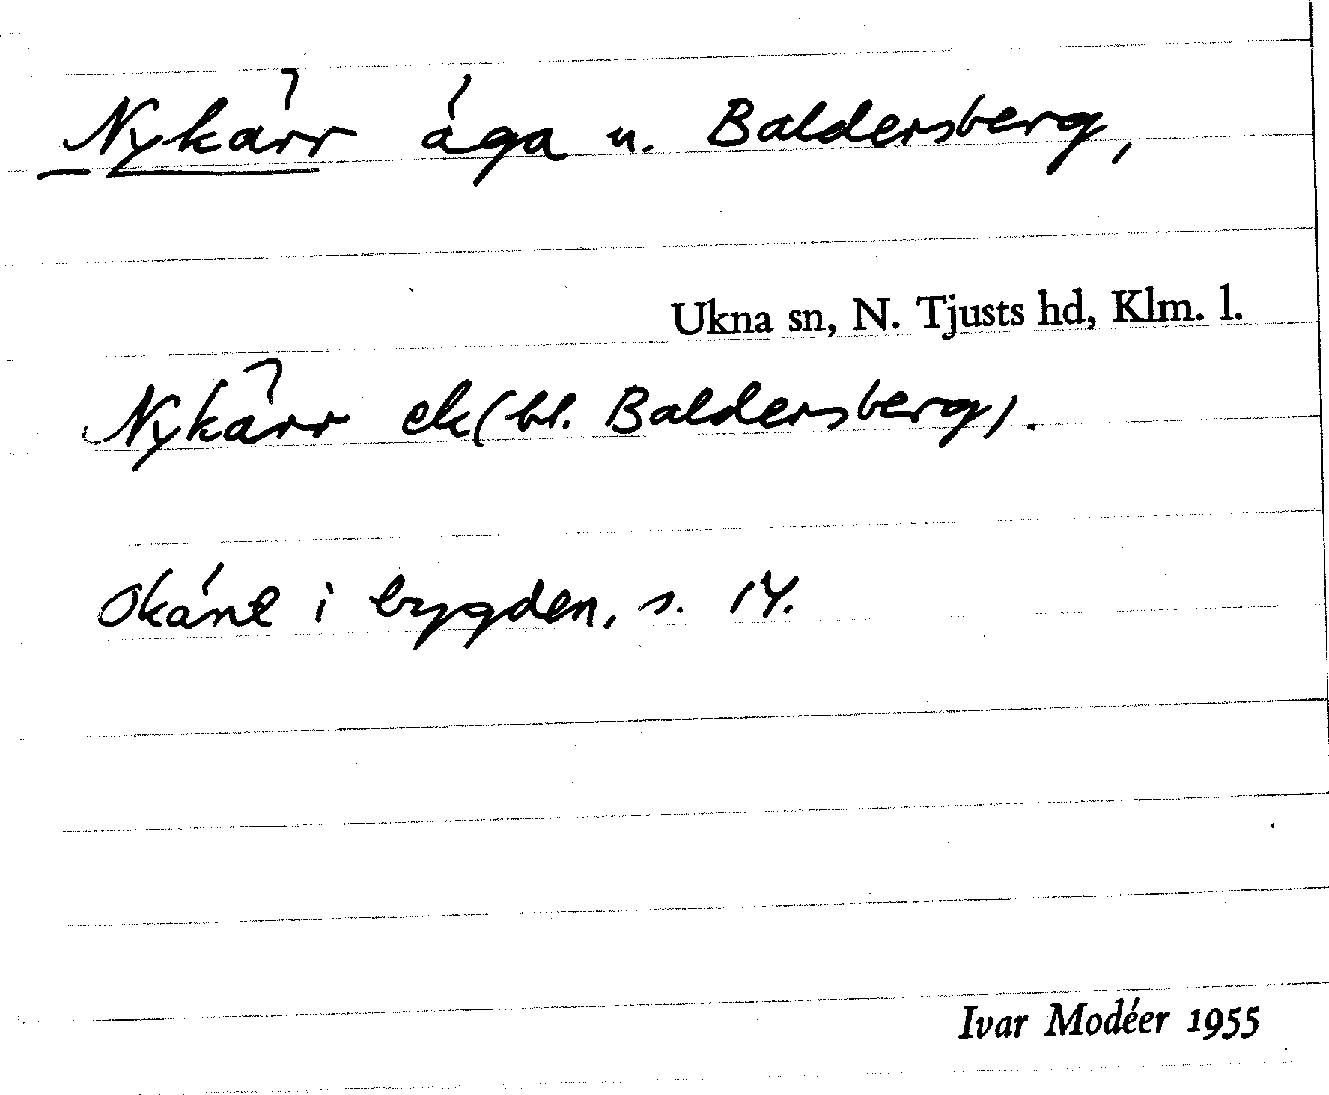 Nykärr äga u. Baldersberg,
Ukna sn, N. Tjusts hd, Klm. l.
Nykärr ek (bl. Baldersberg).
Okänt i bygden, s. 14.
Ivar Modéer 1955